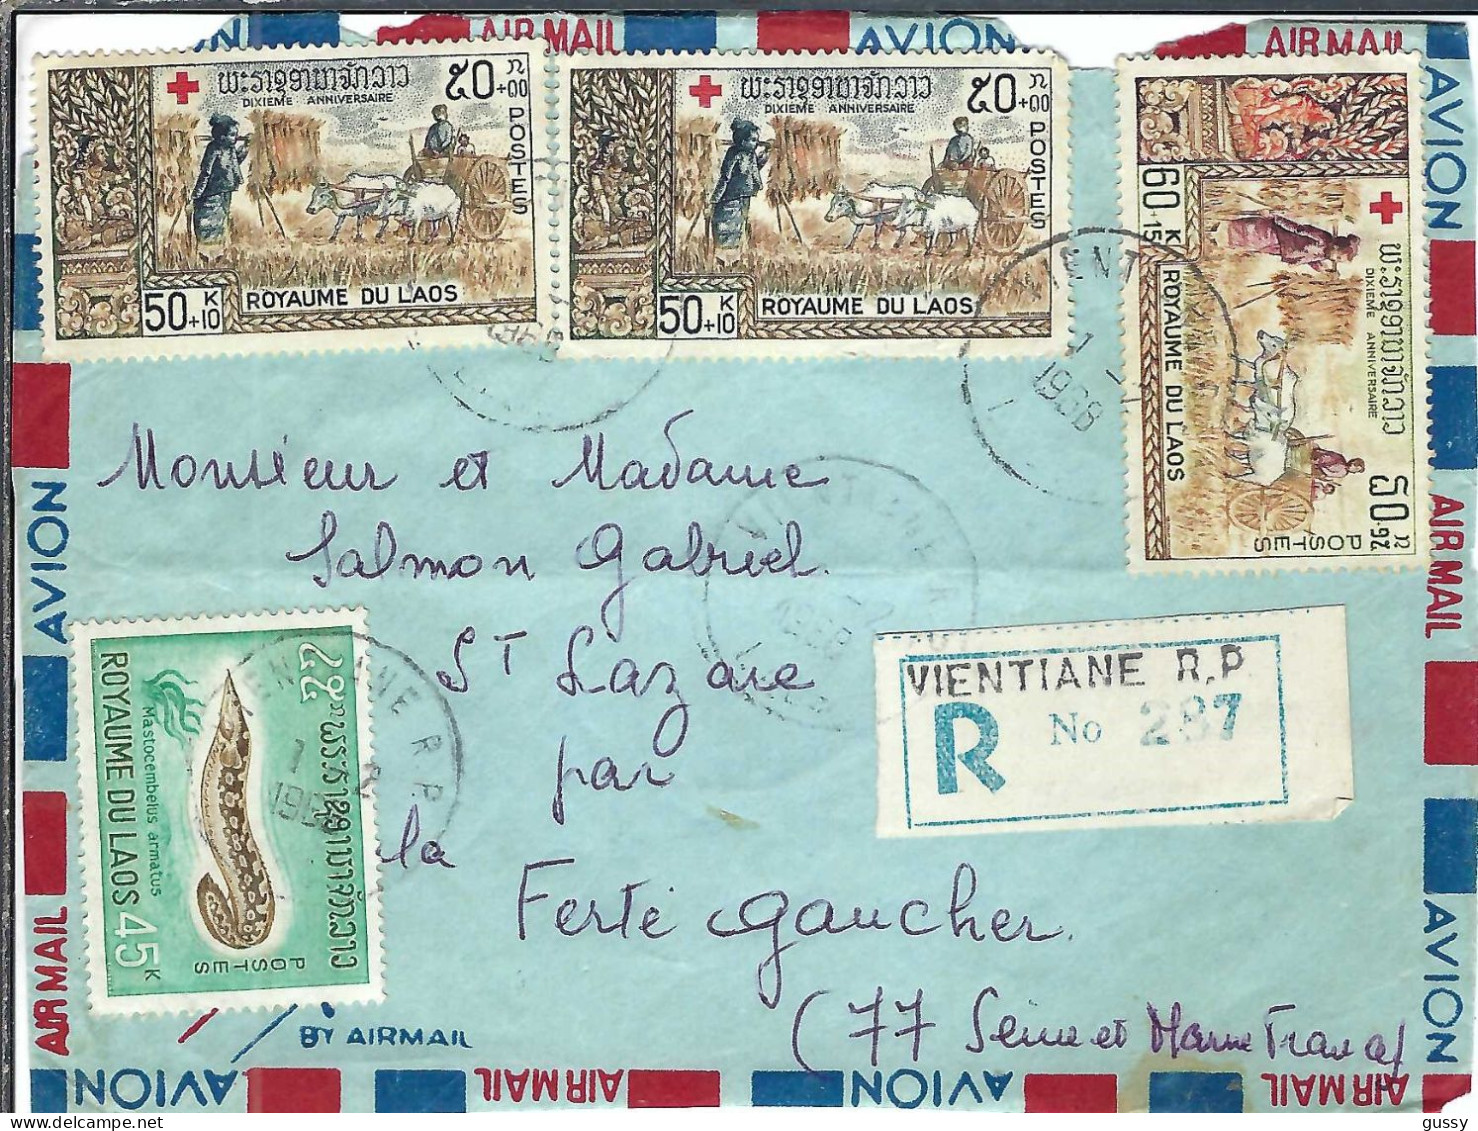 AVION AIR MAIL AVION AIR MAIL
ພຣະຣາຊອານາຈັກລາວ
DIXIEME ANNIVERSAIRE
POSTES
50 K +10
ROYAUME DU LAOS
ພຣະຣາຊອານາຈັກລາວ
DIXIEME ANNIVERSAIRE
POSTES
50 K +10
ROYAUME DU LAOS
60 K +15
ROYAUME DU LAOS
ພຣະຣາຊອານາຈັກລາວ
DIXIEME ANNIVERSAIRE
POSTES
1968
Monsieur et Madame
Salmon Gabriel.
St Lazare
par
la
Ferté Gaucher.
(77 Seine et Marne France)
VIENTIANE R.P.
1968
VIENTIANE R.P.
R No 287
ພຣະຣາຊອານາຈັກລາວ
Mastocembelus armatus
ROYAUME DU LAOS 45 K
POSTES
VIENTIANE R.P.
BY AIRMAIL
AVION
AIR MAIL
AVION
AIR MAIL
AVION
AVION AIR MAIL AIR MAIL AVION AIR MAIL AVION AIR MAIL
gussy